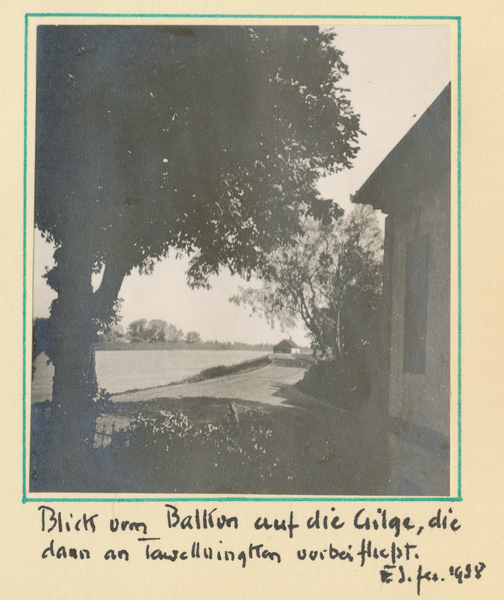 Blick vom Balkon auf die Gilge, die
dann an Tawellningken vorbeifließt.
fec. 1938